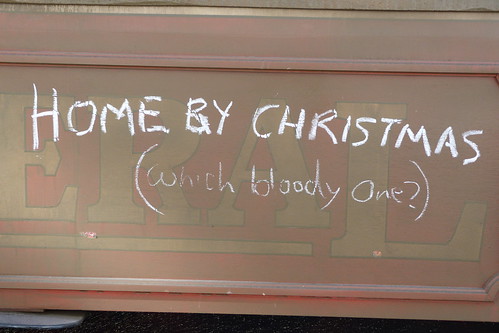 HOME BY CHRISTMAS
(which bloody one?)
ERAL